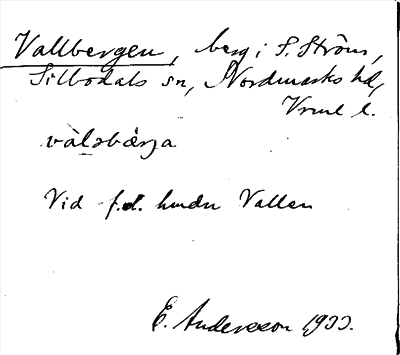 Vallbergen, berg i S. Ström,
Silbodals sn, Nordmarks hd,
Vrml l.
vàlsbæ̀rja
Vid f.d. hmdn Vallen
E. Andersson 1933.